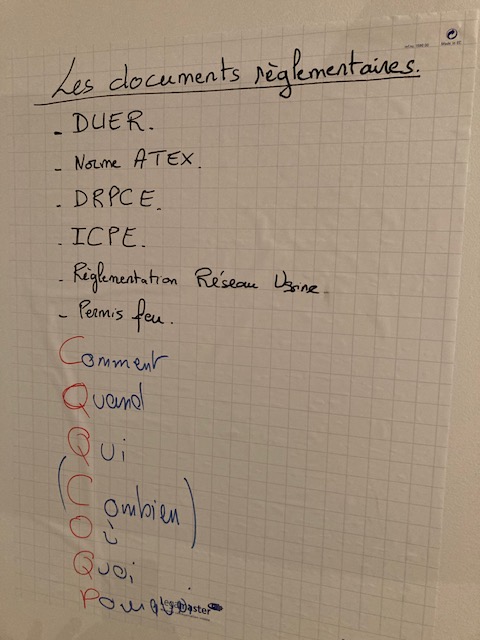 Les documents règlementaires.
- DUER.
- Norme ATEX.
- DRPCE.
- ICPE.
- Règlementation Réseau Usine.
- Permis feu.
Comment
Quand
Qui
(Combien)
Où
Quoi
Pourquoi